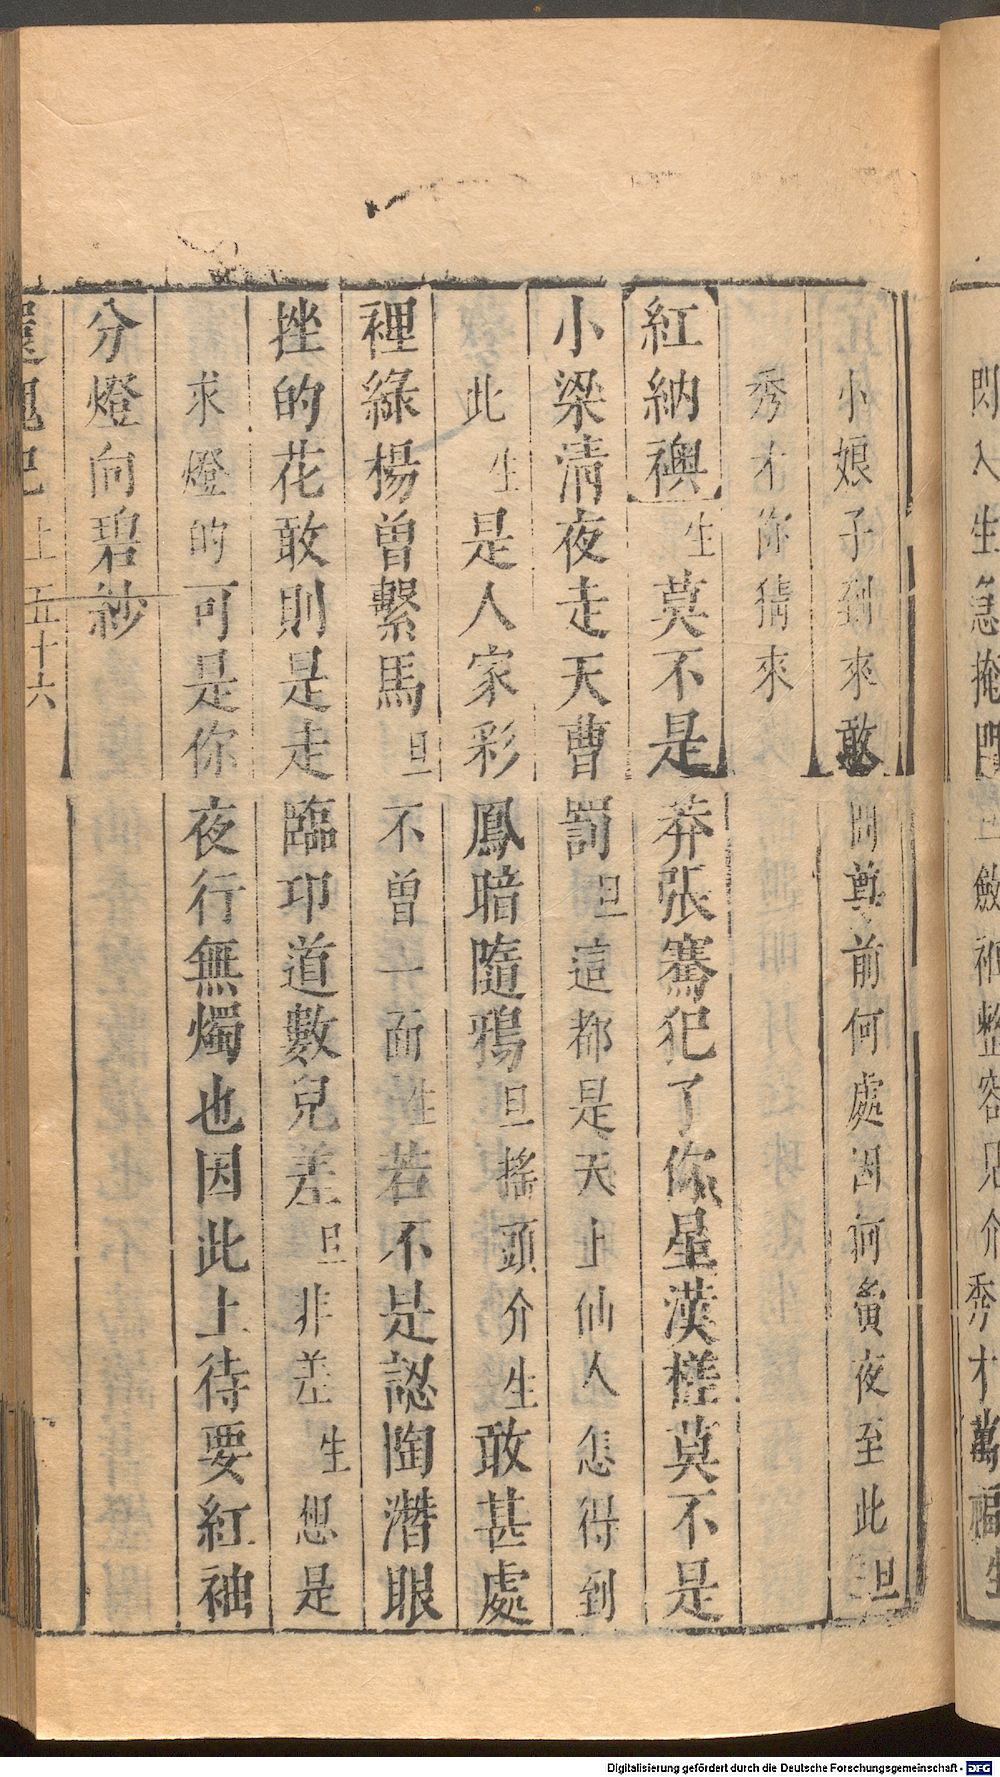 閃入生急掩門旦斂衽整容見介秀才萬福生
小娘子到來敢問尊前何處因何夤夜至此旦
秀才你猜來
紅納襖生莫不是莽張騫犯了你星漢槎莫不是
小梁清夜走天曹罰旦這都是天上仙人怎得到
此生是人家彩鳳暗隨鴉旦搖頭介生敢甚處
裡綠楊曾繫馬旦不曾一面生若不是認陶潛眼
挫的花敢則是走臨邛道數兒差旦非差生想是
求燈的可是你夜行無燭也因此上待要紅袖
分燈向碧紗
還魂記 上 五十六
Digitalisierung gefördert durch die Deutsche Forschungsgemeinschaft - DFG